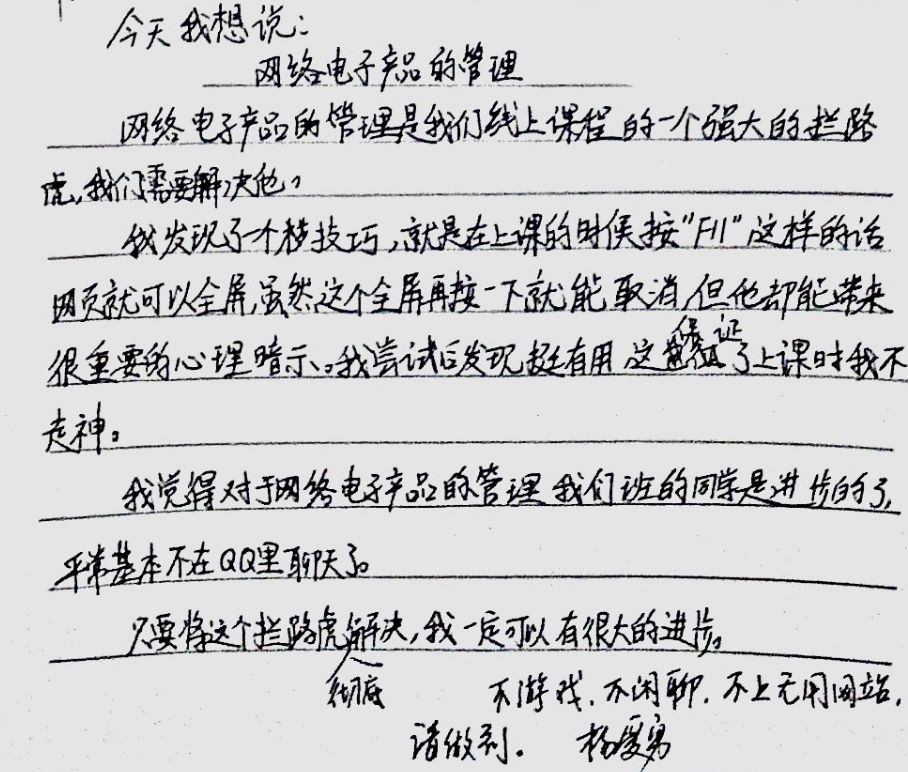 今天我想说：
网络电子产品的管理
网络电子产品的管理是我们线上课程的一个强大的拦路
虎，我们需要解决他。
我发现了一个技巧，就是在上课的时候按“F11”这样的话
网页就可以全屏，虽然这个全屏再按一下就能取消，但他却能带来
很重要的心理暗示。我尝试后发现挺有用 这保证了上课时我不
走神。
我觉得对于网络电子产品的管理 我们班的同学是进步的了，
平常基本不在QQ里聊天了。
只要将这个拦路虎彻底解决，我一定可以有很大的进步。
不游戏，不闲聊，不上无用网站，
请做到。 杨